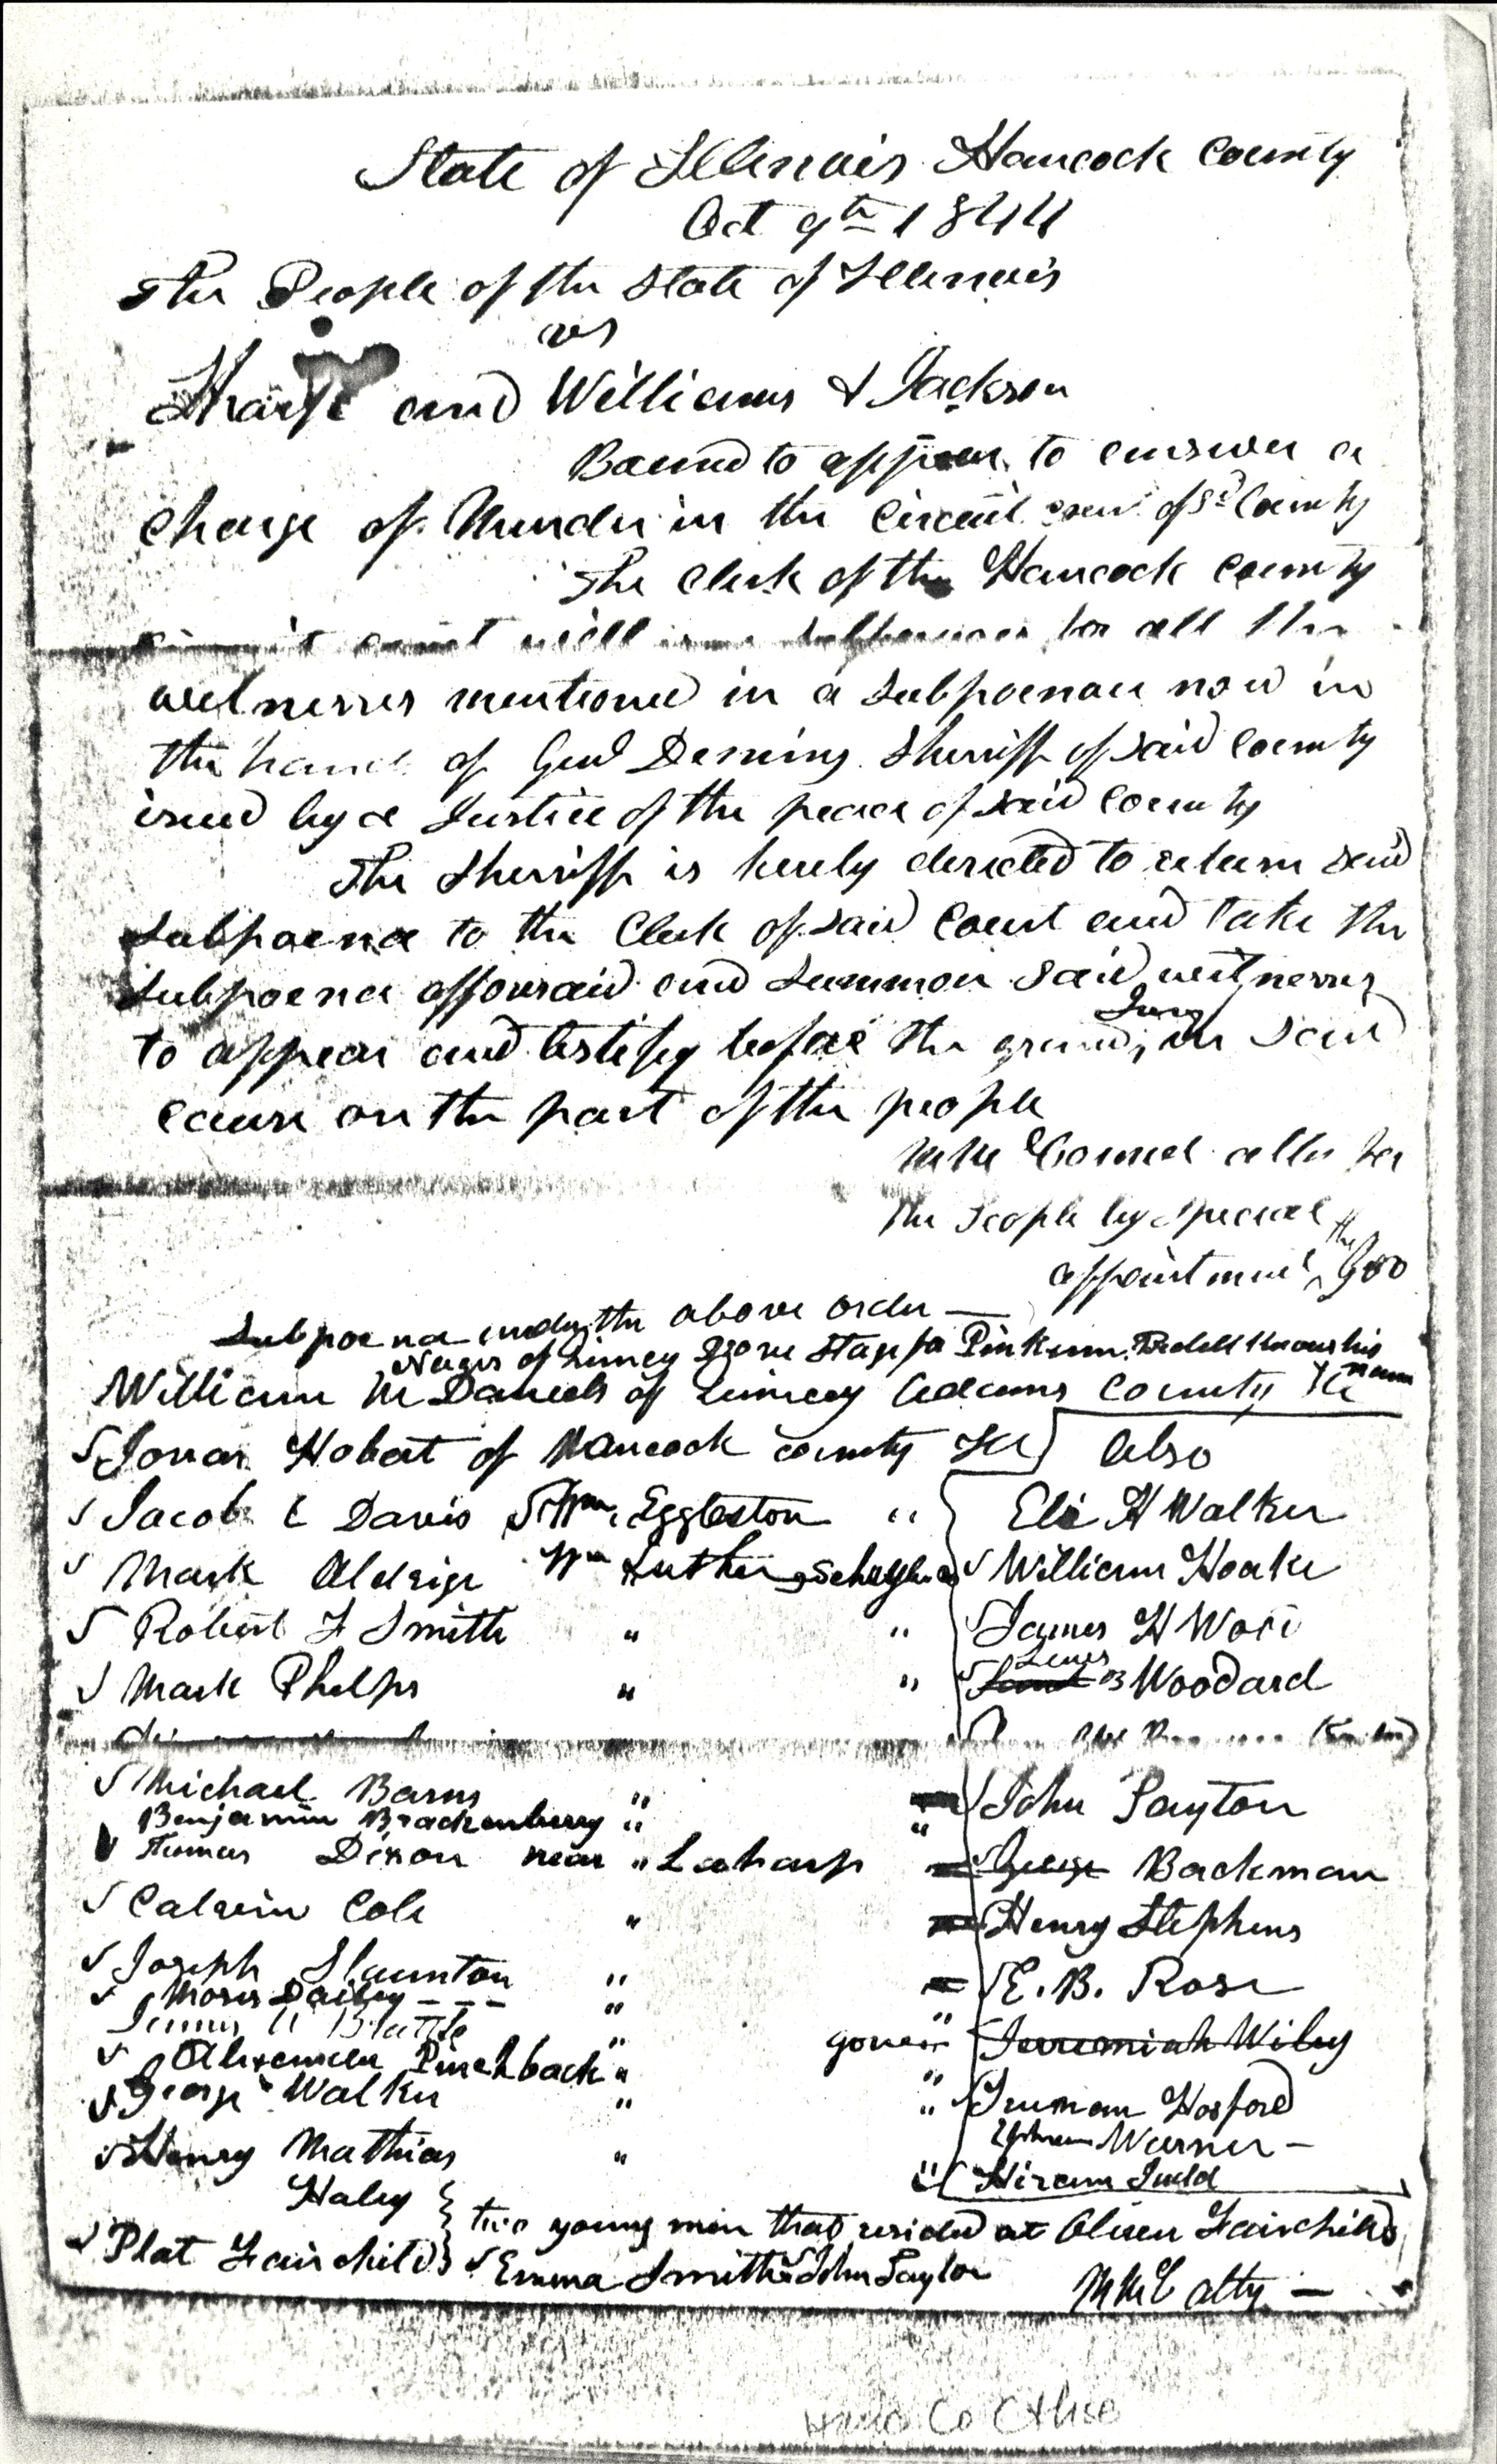 State of Illinois Hancock County
Oct 9th 1844
The People of the State of Illinois
vs
Sharp and Williams & Jackson
Bound to appear to answer a
charge of Murder in the Circuit cour of sd County
The Clerk of the Hancock County
circuit court will issue subpoenaes for all the
witnesses mentioned in a Subpoenae now in
the hand of Genl Deming Sherriff of said County
issued by a Justice of the peace of said County
The Sherriff is hereby derected to return said
Subpoena to the Clerk of said Court and take the
Subpoena afforsaid and Summon said witnesses
to appear and testify before the grand Jury in said
cause on the part of the people
the People by special
appointment
Subpoena under the above order —
of Quincy Stage Pinkum Bedell knows his name
William McDaniels of Quincy Adams County Ill
Jonas Hobart of Hancock county Ill Also
Jacob C Davis Wm. Eggleston " Eli H Walker
Mark Aldrige Wm Luther Schuyler co William Hoake
Robert F Smith " " James H Wood
Mark Phelps " " Lewis B Woodard
Michael Barns " John Payton
Benjamin Brackenberry " "
Thomas Dixon near " Laharp George Backman
Calvin Cole " Henry Stephens
Joseph Staunton " E. B. Rose
Moses Dailey - - - " "
James W Brattle " gone Jerremiah Wiley
Alixander Pinchback "
George Walker " " Truman Hosford
Warner –
Henry Mathias " " Hiram Judd
Haley two young men that resided at Oliver Fairchilds
Plat Fairchild Emma Smith John Taylor
M Mc C atty —
Hanc Co Cthse